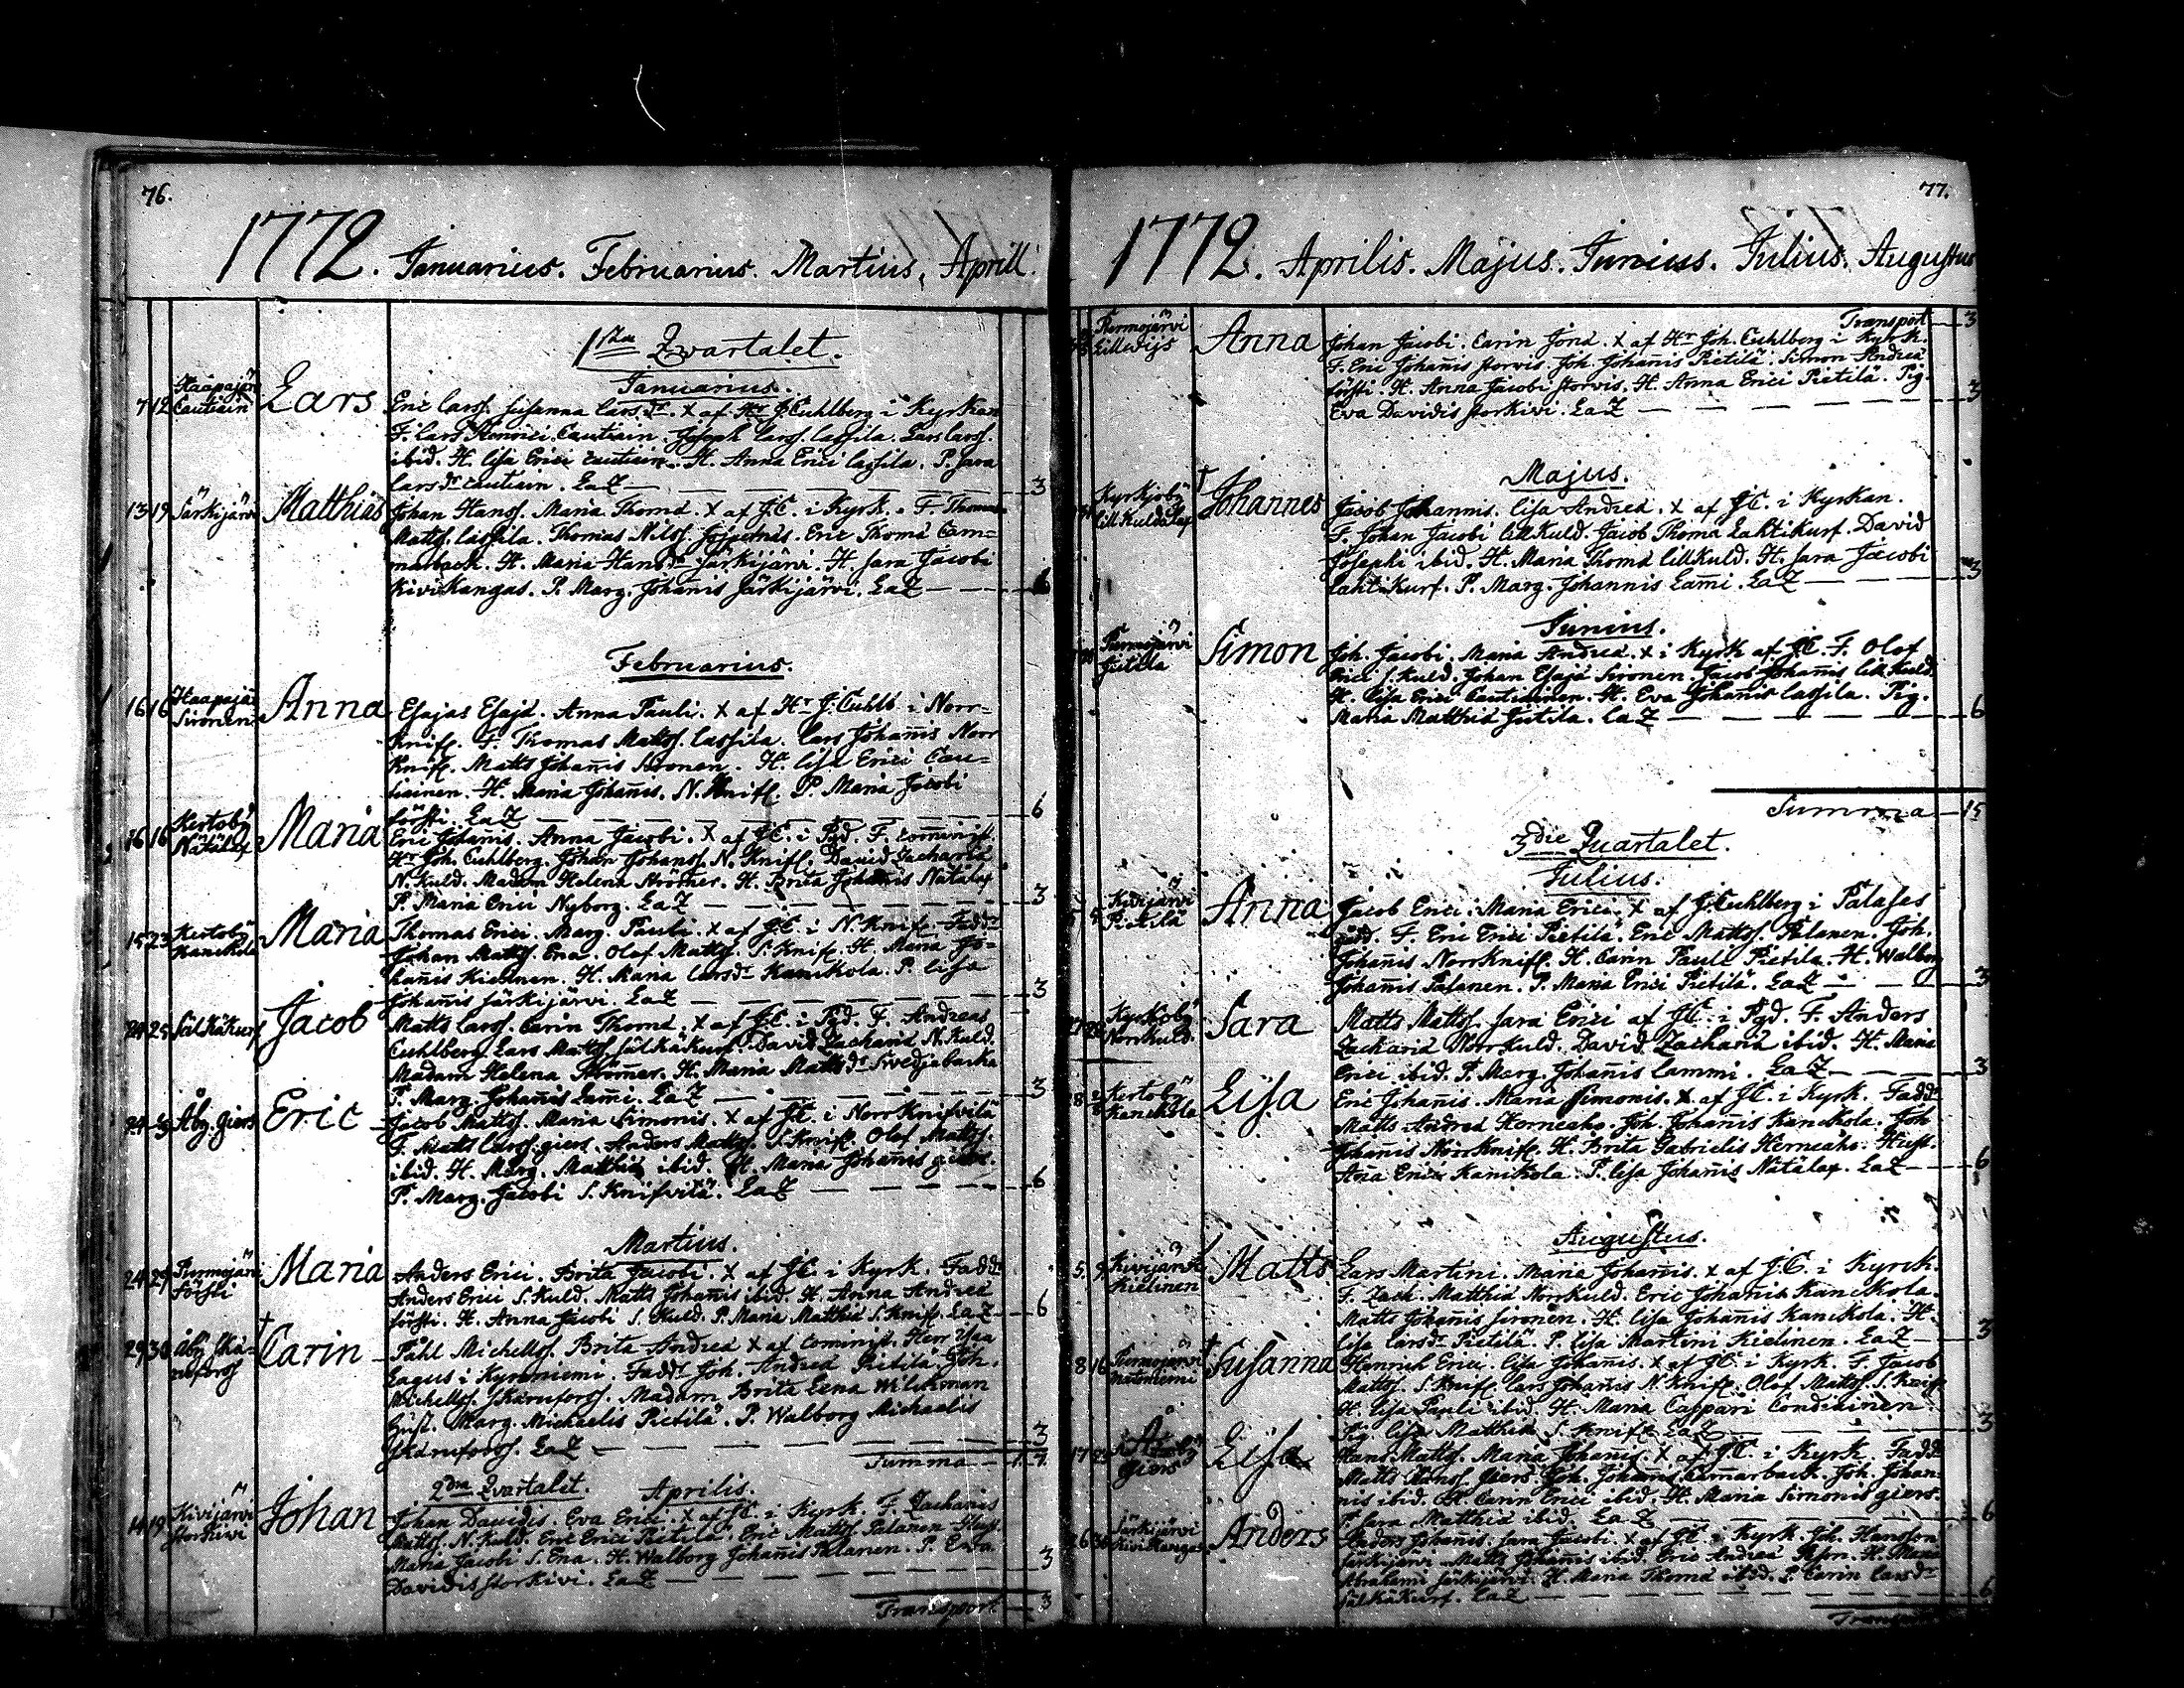 76.
1772. Januarius. Februarius. Martius, Aprill.
1sta Qvartalet.
Januarius.
7 12 Haapajärvi Cautiain Lars Eric Larss. Susanna Lars dr. X af Hr J. Cuhlberg i Kyrkan
F. Lars Henrici Cautiain. Joseph Larss. Lassila. Lars Larss.
ibid. H. Lisa Erici Cautiain. H. Anna Erici Lassila. P. Sara
Lars dr Cautiain. EaZ 3
13 19 Särkijärvi Matthias Johan Hanss. Maria Thomæ. X af J.C. i Kyrk. F. Thomas
Matts. Lassila. Thomas Nilss. Eric Thomæ Cam=
marback. H. Maria Hans dr Särkijärvi. H. Sara Jacobi
Kivikangas. P. Marg. Johanis Särkijärvi. EaZ 6
Februarius.
16 16 Haapajär. Sironen Anna Esajas Esajæ. Anna Pauli. X af Hr J. Cuhlb. i Norr=
Knifl. F. Thomas Matss. Lassila. Lars Johanis Norr
Knifl. Matts Johanis Sironen. H. Lisa Erici Cau=
tiainen. H. Maria Johanis. N. Knifl. P. Maria Jacobi
Försti. EaZ 6
16 16 Kertoby Nätälax Maria Eric Johanis. Anna Jacobi. X af J.C. i Pgd. F. Cominist.
Hr Joh. Cuhlberg. Johan Johanss. N. Knifl. David Zachariæ
N. Kuld. Madam Helena Strömer. H. Brita Johanis Nätälax
P. Maria Erici Nyborg. EaZ 3
15 23 Kertoby Kanckola Maria Thomas Erici. Marg. Pauli. X af J.C. i N. Knifl. Faddr
Johan Matss. Ena. Olof Matss. S. Knifl. H. Maria Jo=
hanis Kielinen. H. Maria Lars dr Kanckola. P. Lisa
Johanis Särkijärvi. EaZ 3
24 25 Sälkäkurf Jacob Matts Larss. Carin Thomæ. X af J.C. i Pgd. F. Andreas
Cuhlberg. Lars Matss Sälkäkurf. David Zachariæ N. Kuld.
Madam Helena Strömer. H. Maria Matts dr Svedjabacka
P. Marg. Johanis Lami. EaZ 3
Åby. giers Eric Jacob Matss. Maria Simonis. X af J.C. i Norrknifvilä
F. Matts Larss. giers. Anders Matss. S. Knifl. Olof Matss.
ibid. H. Marg. Matthiæ ibid. H. Maria Johanis giers.
P. Marg. Jacobi S. Knifvilä. EaZ 6
Martius.
24 29 Purmojärvi Försti Maria Anders Erici. Brita Jacobi. X af J.C. i Kyrk. Faddr
Anders Erici S. Kuld. Matts Johanis ibid. H. Anna Andreæ
Försti. H. Anna Jacobi S. Kuld. P. Maria Matthiæ S. Knifl. EaZ 6
29 30 Åby Skä=nuforss † Carin Påhl Michelss. Brita Andreæ X af Cominist. Herr Isaa
Lagus i Kyroniemi. Faddr Joh. Andreæ Pietilä. Joh.
Michelss. Skärnforss. Madam Brita Lena Wilckman
Hust. Marg. Michaelis Pietilä. P. Walborg Michaelis
Skärnforss. EaZ 3
Summa
2dra Qvartalet. Aprilis.
14 19 Kivijärvi Storkivi Johan Johan Davidis. Eva Erici. X af J.C. i Kyrk. F. Zacharias
Matss. N. Kuld. Eric Erici Pietilä. Eric Matss Palanen. Hust.
Maria Jacobi S. Ena. H. Walborg Johanis Palanen. P. Eva
Davidis Storkivi. EaZ 3
Transport 3
77.
1772. Aprilis. Majus. Junius. Julius. Augustus
Transport 3
Purmojärvi Lillwijs Anna Johan Jacobi. Carin Jonæ. X af Hr Joh. Cuhlberg i Kyrk.
F. Eric Johanis Storvis. Joh. Johanis Pietilä. Simon Andreæ
Försti. H. Anna Jacobi Storvis. H. Anna Erici Pietilä. Pig.
Eva Davidis Storkivi. EaZ 3
Majus.
Kyrkjoby Lillkuldalax † Johannes Jacob Johannis. Lisa Andreæ. X af J.C. i Kyrkan.
F. Johan Jacobi Lillkuld. Jacob Thomæ Lahtikurf. David
Josephi ibid. H. Maria Thomæ Lillkuld. H. Sara Jacobi
Lahtikurf. P. Marg. Johannis Lami. EaZ 3
Junius.
Purmojärvi Jutila Simon Joh. Jacobi. Maria Andreæ. X i Kyrk af J.C. F. Olof
Erici S. Kuld. Johan Esajæ Sironen. Jacob Johanis Lillkuld.
H. Lisa Erici Cautiainen. H. Eva Johanis Lassila. Pig.
Maria Matthiæ Jutila. EaZ 6
Summa 15
3die Quartalet.
Julius.
Kivijärvi Pietilä Anna Jacob Erici. Maria Erici. X af J. Cuhlberg i Palases
gdd. F. Eric Erici Pietilä. Eric Matss. Palanen. Joh.
Johanis Norrknifl. H. Carin Pauli Pietilä. H. Walborg
Johanis Palanen. P. Maria Erici Pietilä. EaZ 3
Kyrkoby Norrkuld. Sara Matts Matss. Sara Erici af J.C. i Pgd. F. Anders
Zachariæ Norrkuld. David Zachariæ ibid. H. Maria
Erici ibid. P. Marg. Johanis Lammi. EaZ 3
Kertoby Kanckola Lisa Eric Johanis. Maria Simonis. X af J.C. i Kyrk. Faddr
Matts Andreæ Herneaho. Joh. Johanis Kanckola. Joh
Johanis Norrknifl. H. Brita Gabrielis Herneaho. Hust.
Ana Erici Kanckola. P. Lisa Johanis Nätälax. EaZ 6
Augustus.
5 9 Kivijärvi Kielinen Matts Lars Martini. Maria Johanis. X af J.C. i Kyrk.
F. Zach. Matthiæ Norrkuld. Eric Johanis Kanckola.
Matts Johanis Sironen. H. Lisa Johanis Kanckola. H.
Lisa Lars dr Pietilä. P. Lisa Martini Kielinen. EaZ 3
8 16 Purmojärvi † Susanna Henrich Erici. Lisa Johanis. X af J.C. i Kyrk. F. Jacob
Matss. S. Knifl. Lars Johanis N. Knifl. Olof Matss. S. Knifl
H. Lisa Pauli ibid. H. Maria Cappari Condiainen.
Pig. Lisa Matthiæ S. Knifl. EaZ 3
17 23 Åby Giers Lisa Hans Matss. Maria Johanis. X af J.C. i Kyrk. Faddr
Matts Hanss. Giers. Joh. Johanis Camarback. Joh. Johan
nis ibid. H. Carin Erici ibid. H. Maria Simonis giers.
P. Sara Matthiæ ibid. EaZ 6
26 30 Särkijärvi Kivikangas Anders Anders Johanis. Sara Jacobi. X af J.C. i Kyrk. Joh. Hansson
Särkijärvi. Matts Johanis ibid. Eric Andreæ H. Maria
Abrahami Särkijärvi. H. Maria Thomæ ibid. P. Carin Lars dr
Sälkäkurf. EaZ 6
Transport